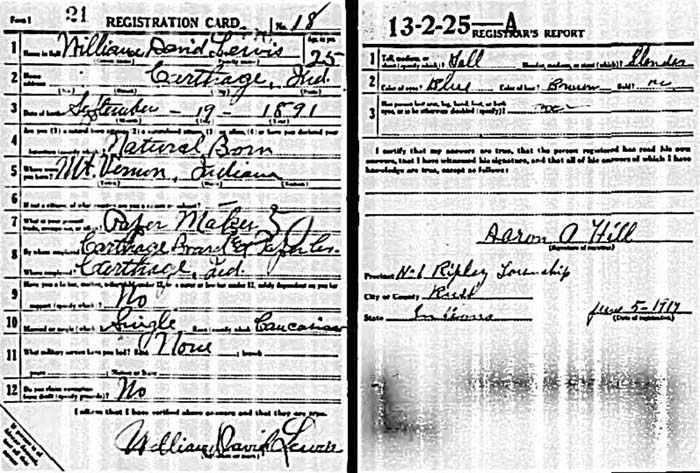 Form 1 21 REGISTRATION CARD No. 18
1 Name in full William David Lewis Age, in yrs. 25
2 Home address Carthage, Ind.
3 Date of birth September - 19 - 1891
4 Are you (1) a natural born citizen, (2) a naturalized citizen, (3) an alien, (4) or have you declared your intention (specify which)? Natural Born
5 Where were you born? Mt. Vernon, Indiana
6 If not a citizen, of what country are you a citizen or subject?
7 What is your present trade, occupation, or office? Paper Maker
8 By whom employed? Carthage Board & Paper Co.
Where employed? Carthage, Ind.
9 Have you a father, mother, wife, child under 12, or a sister or brother under 12, solely dependent on you for support (specify which)? No
10 Married or single (which)? Single Race (specify which)? Caucasian
11 What military service have you had? Rank None ; branch
years ; Nation or State
12 Do you claim exemption from draft (specify grounds)? No
I affirm that I have verified above answers and that they are true.
William David Lewis
13-2-25-A
REGISTRAR'S REPORT
1 Tall, medium, or short (specify which)? Tall Slender, medium, or stout (which)? Slender
2 Color of eyes? Blue Color of hair? Brown Bald? no
3 Has person lost arm, leg, hand, foot, or both eyes, or is he otherwise disabled (specify)?
I certify that my answers are true, that the person registered has read his own
answers, that I have witnessed his signature, and that all of his answers of which I have
knowledge are true, except as follows:
Aaron A Hill
(Signature of registrar)
Precinct No 1 Ripley Township
City or County Rush
State Indiana June 5-1917
(Date of registration)